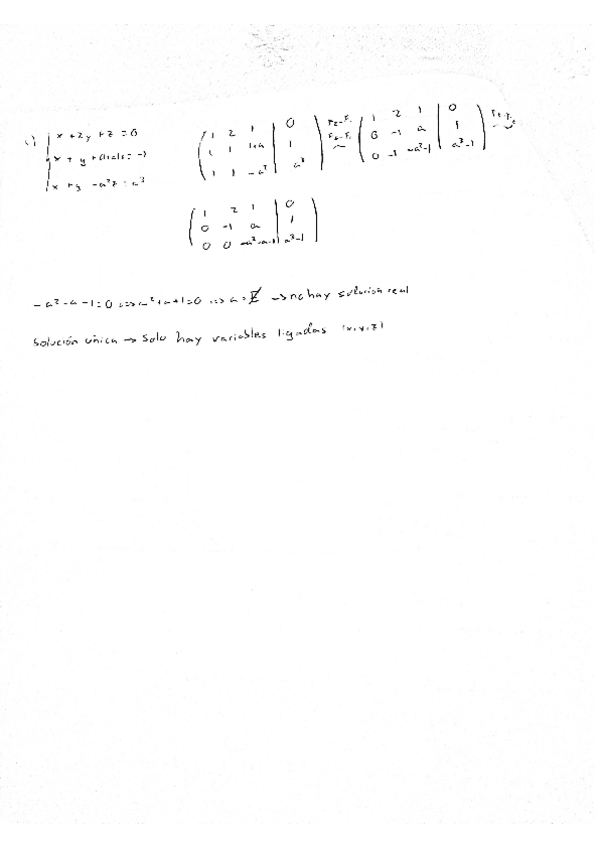 c) x + 2y + z = 0
x + y + (1+a)z = -1
x + y - a²z = a³
( 1 2 1 | 0 ; 1 1 1+a | 1 ; 1 1 -a² | a³ ) F₂-F₁ F₃-F₁ ~ ( 1 2 1 | 0 ; 0 -1 a | 1 ; 0 -1 -a²-1 | a³-1 )
( 1 2 1 | 0 ; 0 -1 a | 1 ; 0 0 -a²-a-1 | a³-1 )
-a²-a-1=0 => a²+a+1=0 => a = → no hay solución real
Solución única → Solo hay variables ligadas (x,y,z)